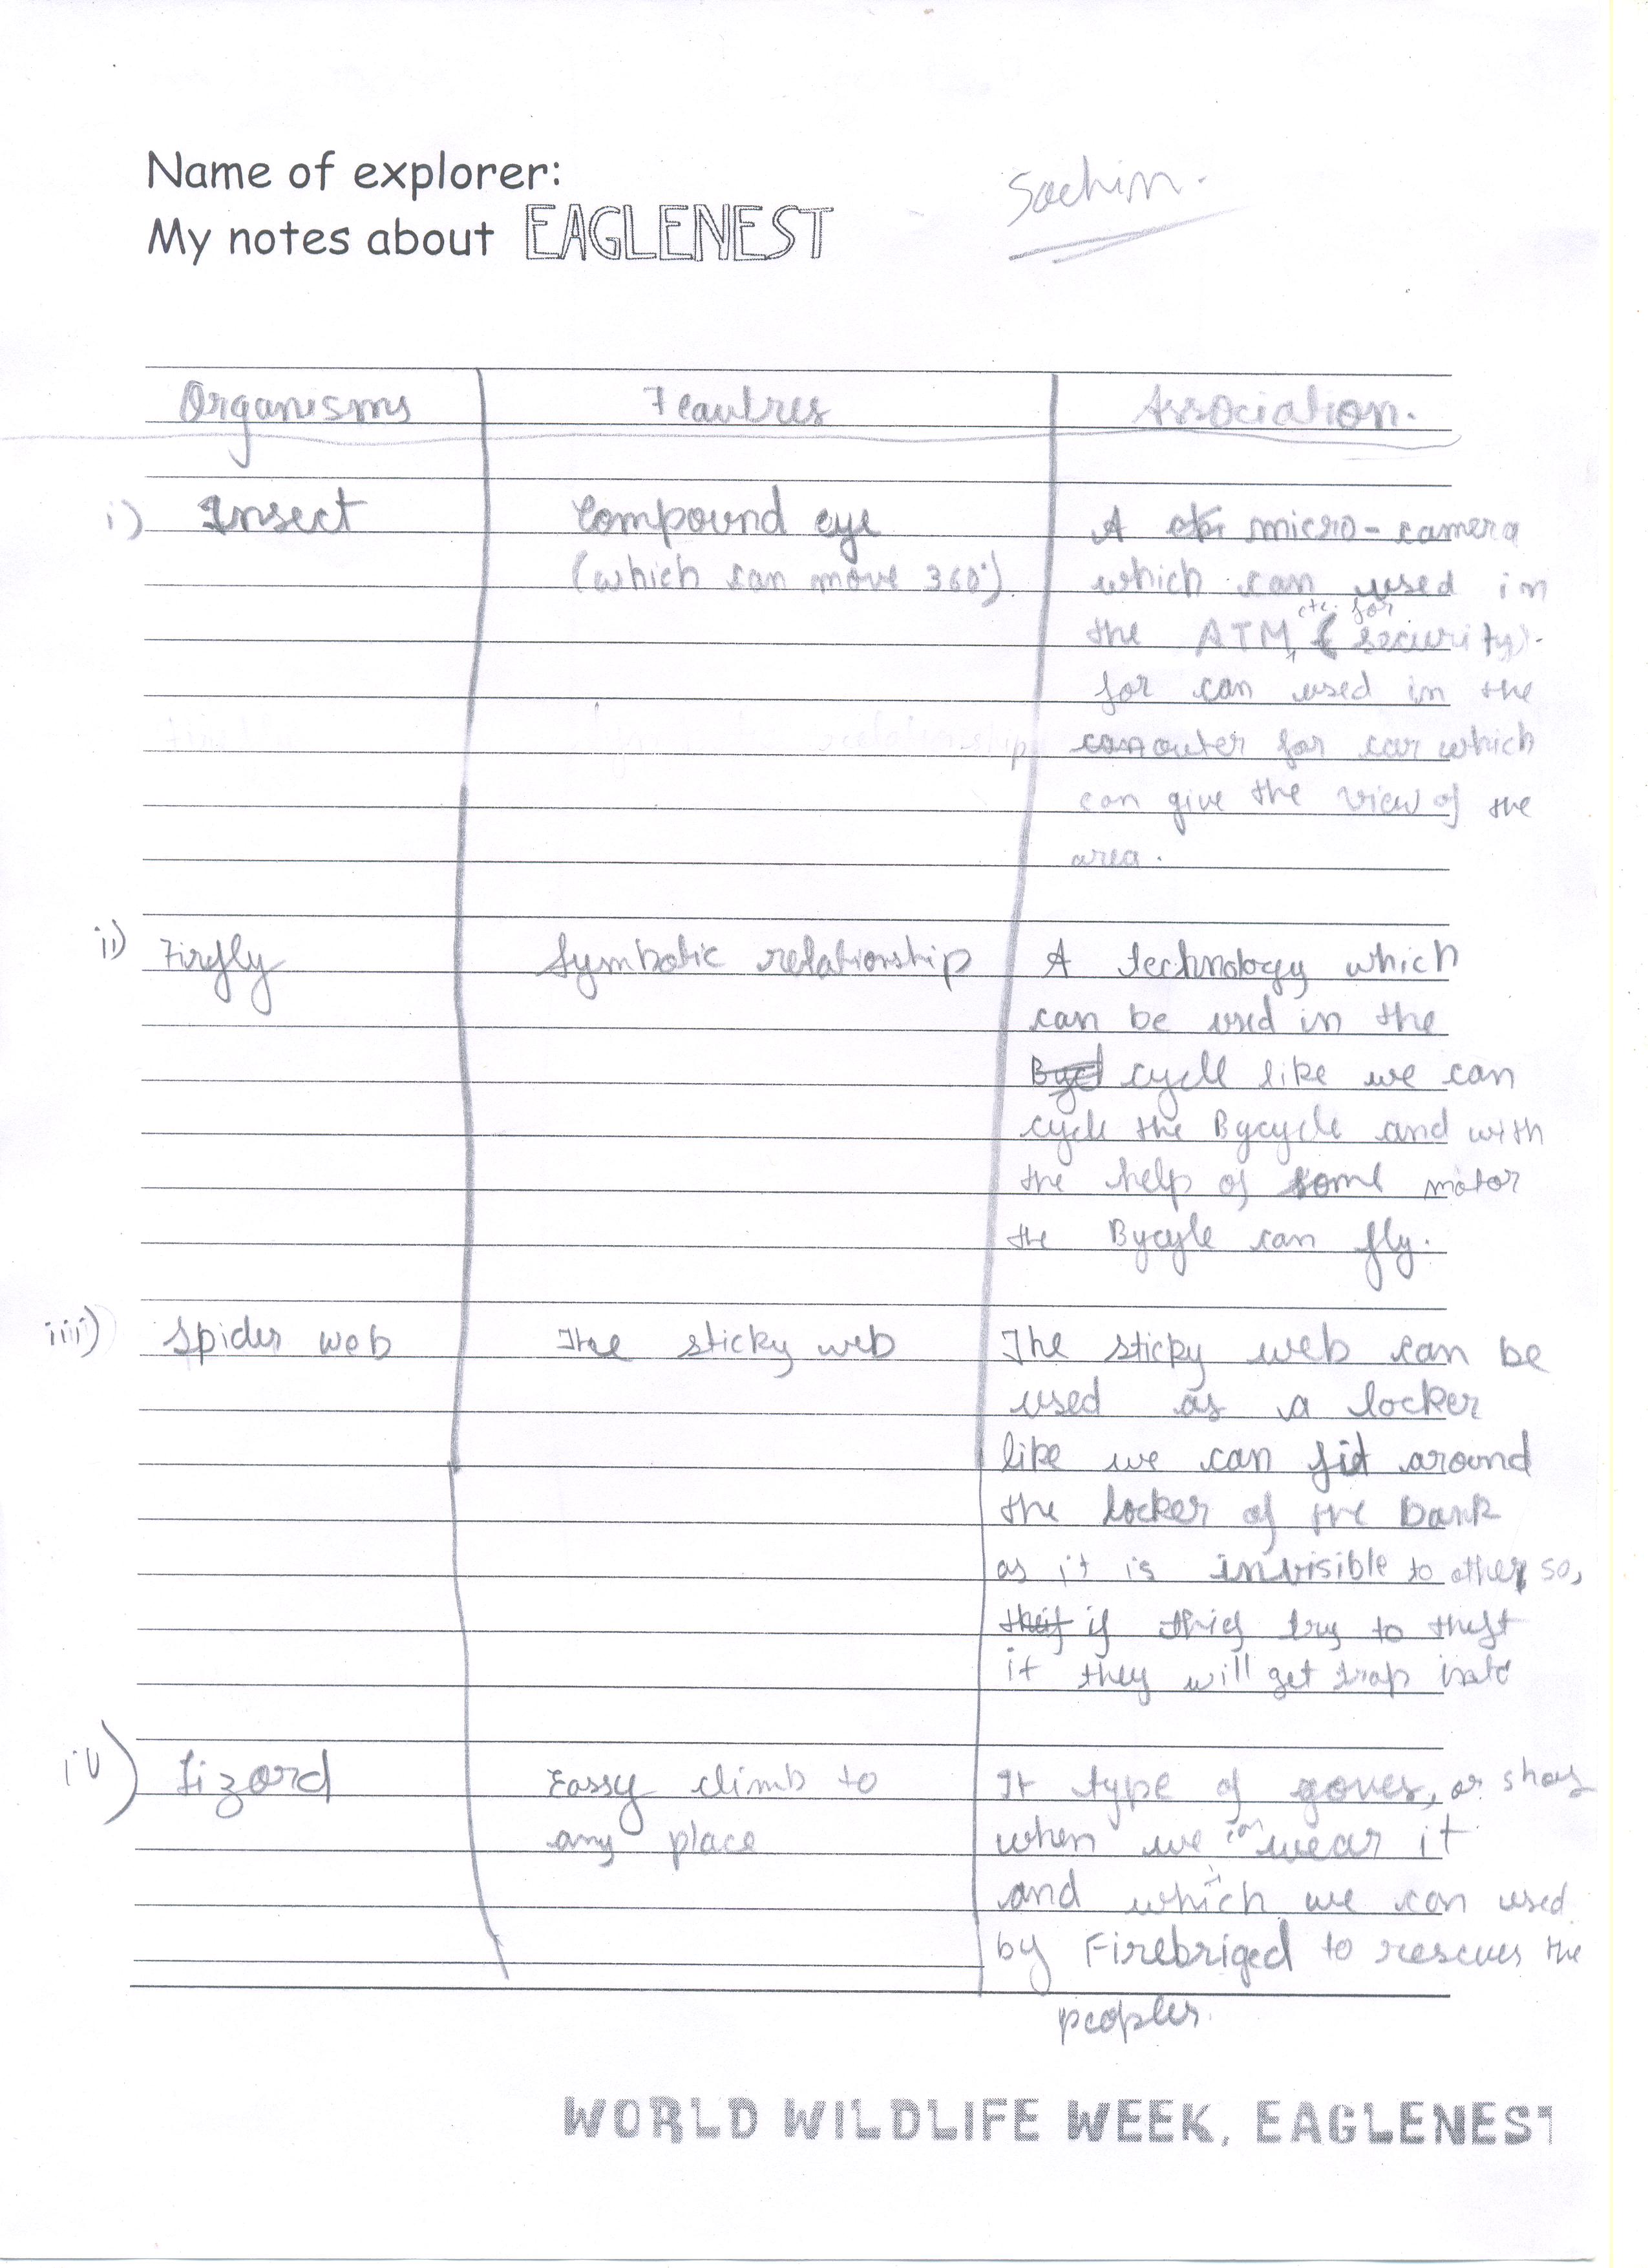 Name of explorer:
Sachin.
My notes about EAGLENEST
Organisms Feautres Association.
i) Insect Compound eye A micro-camera
(which can move 360°). which can used in
the ATM, etc. for security).
for can used in the
outer for car which
can give the view of the
area.
ii) Firefly Symbotic relationship A technology which
can be used in the
cycle like we can
cycle the Bycycle and with
the help of some motor
the Bycyle can fly.
iii) Spider web The sticky web The sticky web can be
used as a locker
like we can fit around
the locker of the bank
as it is invisible to other so,
if thief try to theft
it they will get trap
iv) Lizard Eassy climb to It type of goves, or shos
any place when we can wear it
and which we can used
by Firebriged to rescues the
peoples.
WORLD WILDLIFE WEEK, EAGLENEST